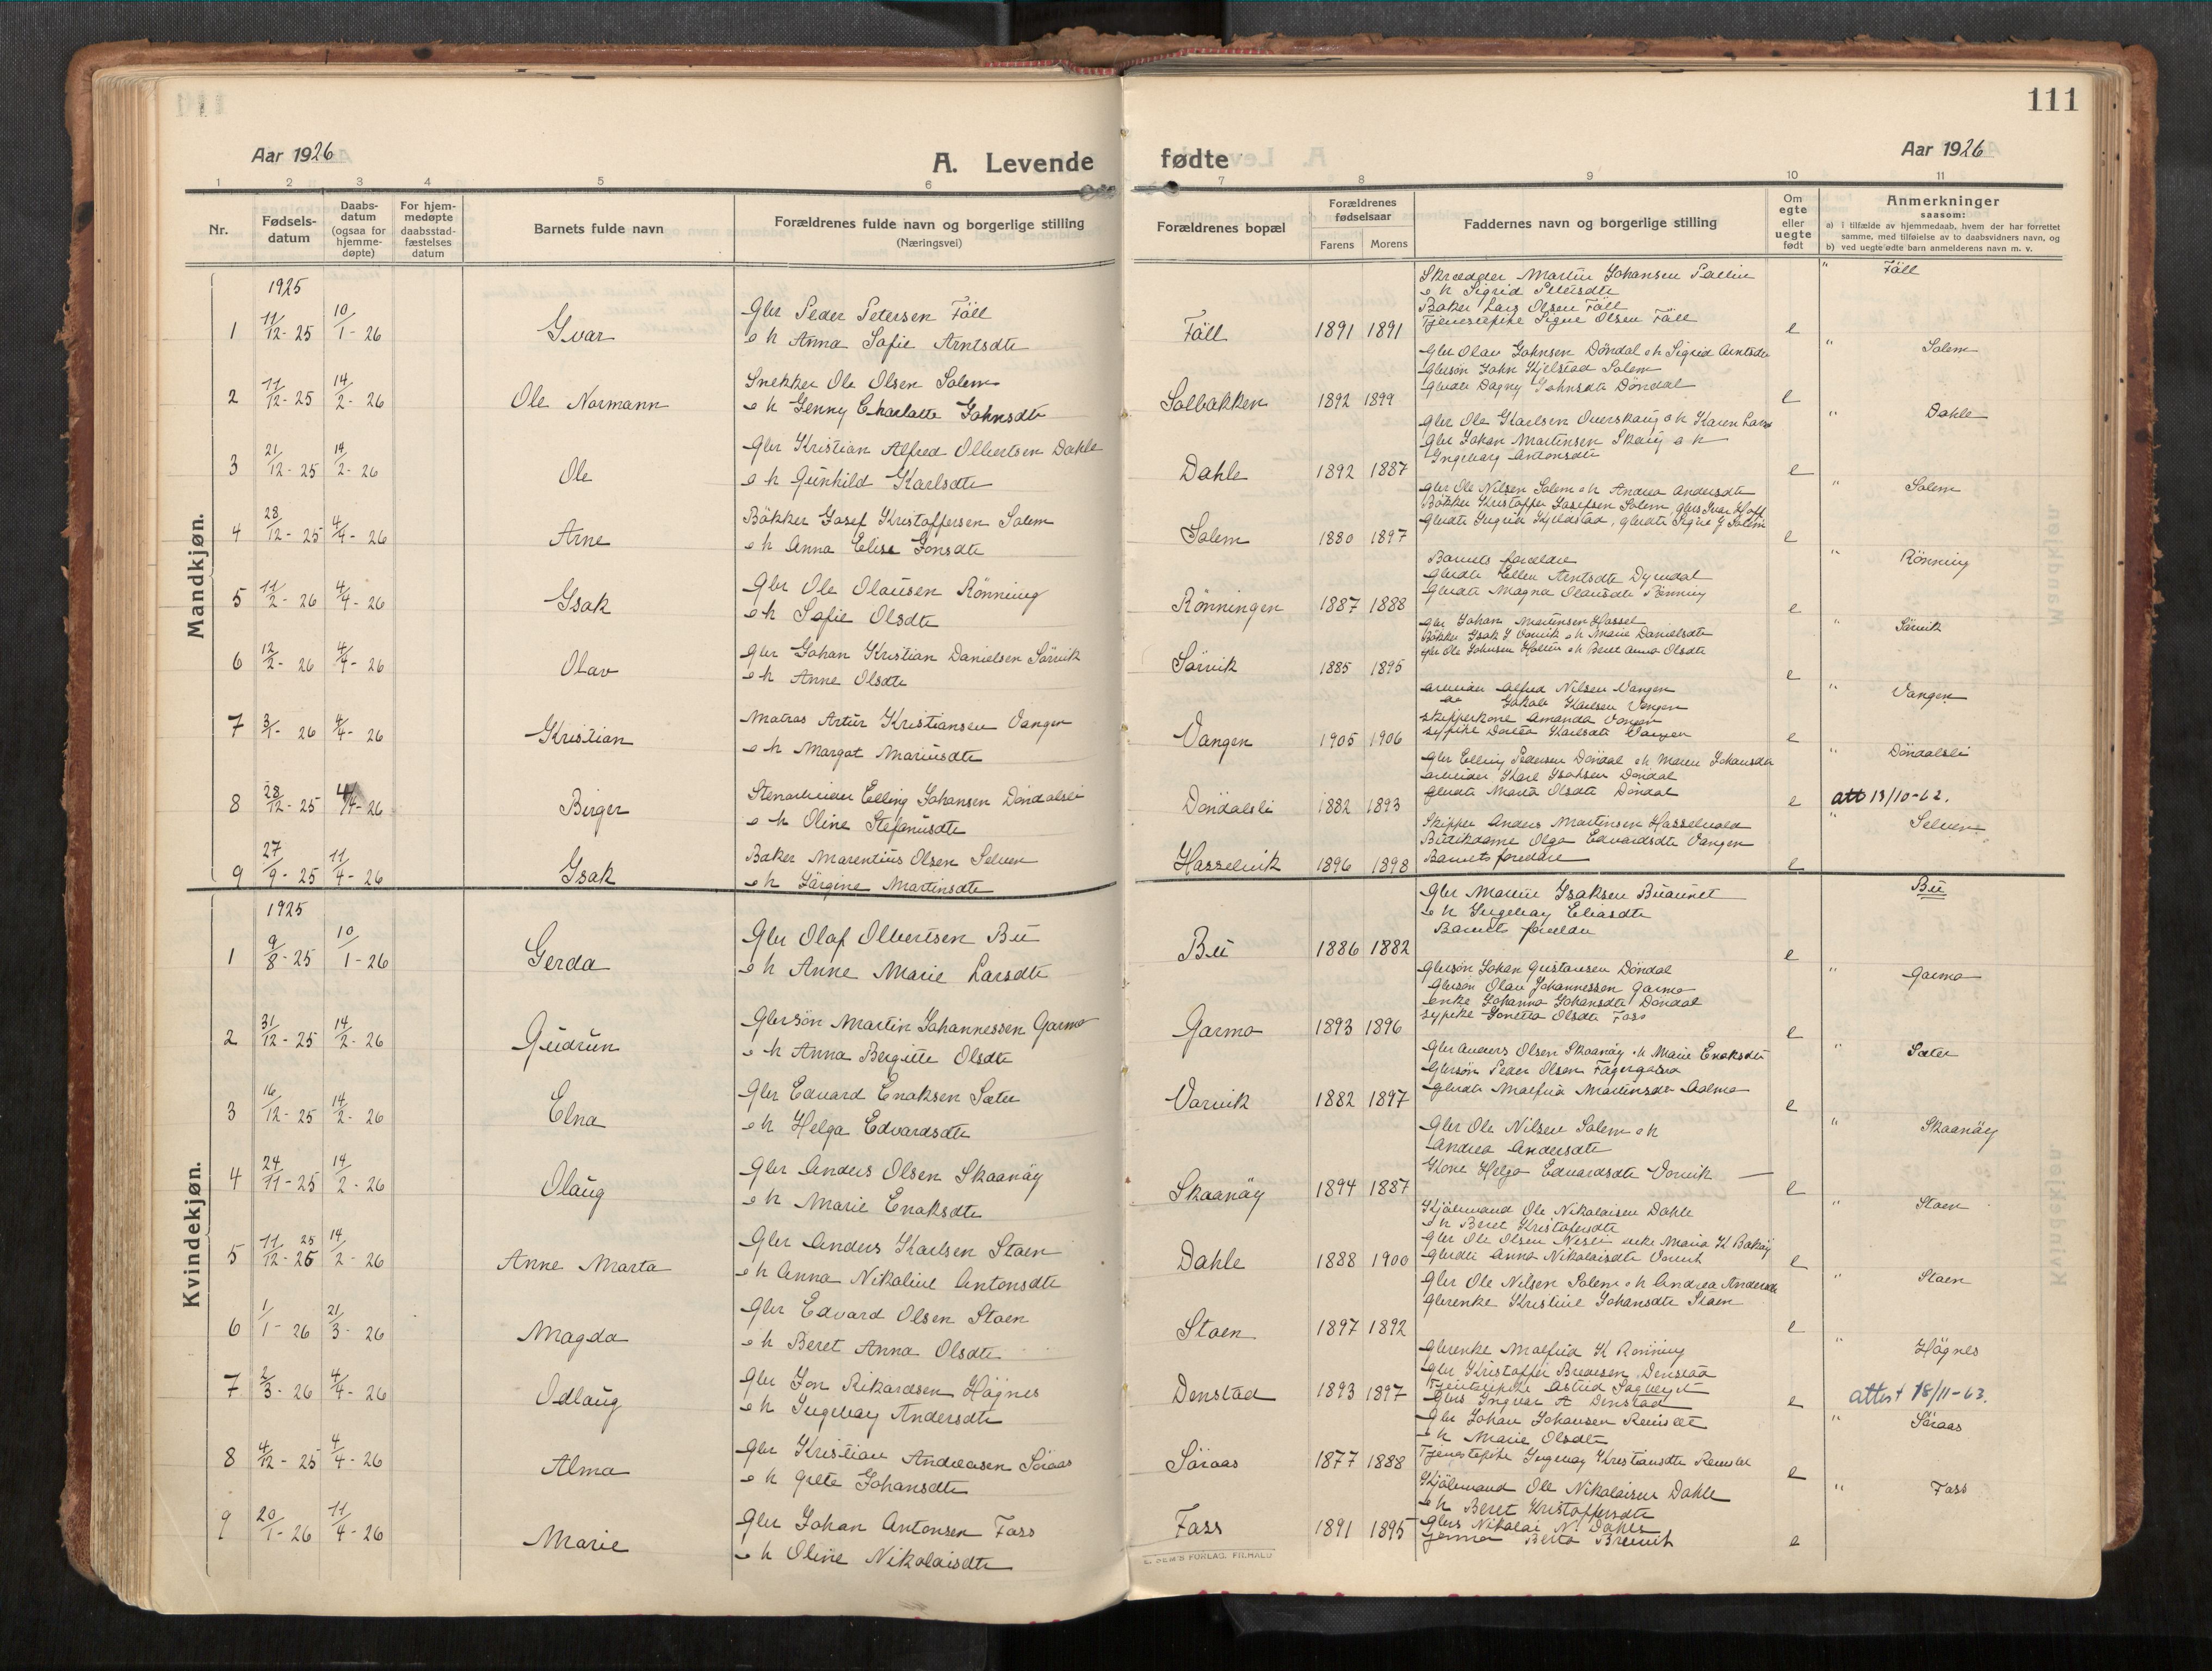 111
Aar 1926
A. Levende fødte
Aar 1926
1 2 3 4 5 6 7 8 9 10 11
Nr.
Fødsels-
datum
Daabs-
datum
(ogsaa for
hjemme-
døpte)
For hjem-
medøpte
daabsstad-
fæstelses
datum
Barnets fulde navn
Forældrenes fulde navn og borgerlige stilling
(Næringsvei)
Forældrenes bopæl
Forældrenes
fødselsaar
Farens Morens
Faddernes navn og borgerlige stilling
Om
egte
eller
uegte
født
Anmerkninger
saasom:
a) i tilfælde av hjemmedaab, hvem der har forrettet
samme, med tilføielse av to daabsvidners navn, og
b) ved uegte ødte barn anmelderens navn m. v.
Mandkjøn.
1925
1 11/12-25 10/1-26 Ivar
Gbr Peder Petersen Föll
o h Anna Sofie Arntsdtr
Föll 1891 1891
Skrædder Martin Johansen
o h Sigrid Petersdtr
Baker Lars Olsen Föll
Tjenestepike Signe Olsen Föll
e " Föll
2 11/12-25 14/2-26 Ole Normann
Snekker Ole Olsen Solem
o h Jenny Charlotte Johnsdtr
Solbakken 1892 1899
Gbr Olav Johnsen Döndal o h Sigrid Arntsdtr
Gbrsön John Kjelstad Solem
Gbrdtr Dagny Johnsdtr Döndal
e " Solem
3 21/12-25 14/2-26 Ole
Gbr Kristian Alfred Olbertsen Dahle
o h Gunhild Karlsdtr
Dahle 1892 1887
Gbr Ole Karlsen Overskaug o h Karen Larsd
Gbr Johan Martinsen Skaug o h
Ingeborg Antonsdtr
e " Dahle
4 28/12-25 4/4-26 Arne
Bökker Josef Kristoffersen Solem
o h Anna Elise Jonsdtr
Solem 1880 1897
Gbr Ole Nilsen Solem o h Andrea Andersdtr
Bökker Kristoffer Josefsen Solem, Gbrs Ivar Hoff
Gbrdtr Ingrid Kjeldstad, gbrdtr Signe J Solem
e " Solem
5 11/2-26 4/4-26 Isak
Gbr Ole Olausen Rönning
o h Sofie Olsdtr
Rönningen 1887 1888
Barnets foreldre
Gbrdtr Ellen Arntsdtr Dyrndal
Gbrdtr Magna Olausdtr Rönning
e " Rönning
6 12/2-26 4/4-26 Olav
Gbr Johan Kristian Danielsen Sörvik
o h Anne Olsdtr
Sörvik 1885 1895
Gbr Johan Martinsen Hassel
Bökker Isak J Vorvik o h Marie Danielsdtr
Gbr Ole Johnsen o h Beret Anna Olsdtr
e " Sörvik
7 3/1-26 4/4-26 Kristian
Matros Artur Kristiansen Vangen
o h Margot Mariusdtr
Vangen 1905 1906
arbeider Alfred Nilsen Vangen
do Jakob Karlsen Vangen
skipperkone Amanda Vangen
sypike Dorea Karlsdtr Vangen
e " Vangen
8 28/12-25 4/4-26 Birger
Stenarbeider Elling Johansen Döndalsli
o h Oline Stefanusdtr
Döndalsli 1882 1893
Gbr Elling Pedersen Döndal o h Maren Johansdtr
arbeider Karl Isaksen Döndal
gbrdtr Maria Olsdtr Döndal
e " Döndalsli
att 13/10-62.
9 27/9-25 11/4-26 Isak
Baker Marentius Olsen Selven
o h Jörgine Martinsdtr
Hasselvik 1896 1898
Skipper Anders Martinsen Hasselvold
Butikdame Olga Edvardsdtr Vangen
Barnets foreldre
e " Selven
Kvindekjøn.
1925
1 9/8-25 10/1-26 Gerda
Gbr Olaf Olbertsen Bu
o h Anne Marie Larsdtr
Bu 1886 1882
Gbr Martin Isaksen Buaunet
o h Ingeborg Eliasdtr
Barnets foreldre
e Bu
2 31/12-25 14/2-26 Gudrun
Gbrsön Martin Johannessen Garmo
o h Anna Bergitte Olsdtr
Garmo 1893 1896
Gbrsön Johan Gustavsen Döndal
Gbrsön Olav Johannessen Garmo
enke Johanna Johansdtr Döndal
sypike Jonetta Olsdtr Foss
e " Garmo
3 16/12-25 14/2-26 Elna
Gbr Edvard Enoksen Sæter
o h Helga Edvardsdtr
Vorvik 1882 1897
Gbr Anders Olsen Skaanöy o h Marie Enoksdtr
Gbrsön Peder Olsen
gbrdtr Malfrid Martinsdtr Aalmo
e " Sæter
4 24/11-25 14/2-26 Olaug
Gbr Anders Olsen Skaanöy
o h Marie Enoksdtr
Skaanöy 1894 1887
Gbr Ole Nilsen Solem o h
Andrea Andersdtr
Kone Helga Edvardsdtr Vorvik —
e " Skaanöy
5 11/12-25 25 14/2-26 Anne Marta
Gbr Anders Karlsen Staen
o h Anna Nikoline Antonsdtr
Dahle 1888 1900
Kjölemand Ole Nikolaisen Dahle
o h Beret Kristofersdtr
Gbr Ole Olsen enke Maria K Baköy
Gbrdtr Anna Nikolaisdtr
e " Staen
6 1/1-26 21/3-26 Magda
Gbr Edvard Olsen Staen
o h Beret Anna Olsdtr
Staen 1897 1892
Gbr Ole Nilsen Solem o h Andrea Andersdtr
Gbrenke Kristine Johansdtr Staen
e " Staen
7 2/3-26 4/4-26 Odlaug
Gbr Jon Rikardsen Högnes
o h Ingeborg Andersdtr
Denstad 1893 1897
Gbrenke Malfrid K Rönning
Gbr Kristoffer Denstad
Tjenestepike Astrid
Gbrs Ingvar A Denstad
e " Högnes
attest 18/11-63.
8 4/12-25 4/4-26 Alma
Gbr Kristian Andreasen Söraas
o h Grete Johansdtr
Söraas 1877 1888
Gbr Johan Johansen
o h Marie Olsdtr
Tjenestepike Ingeborg Kristiansdtr
e " Söraas
9 20/1-26 11/4-26 Marie
Gbr Johan Antonsen Foss
o h Oline Nikolaisdtr
Foss 1891 1895
Kjölemand Ole Nikolaisen Dahle
o h Beret Kristoffersdtr
Gbrs Nikolai N. Dahle
Berta
e " Foss